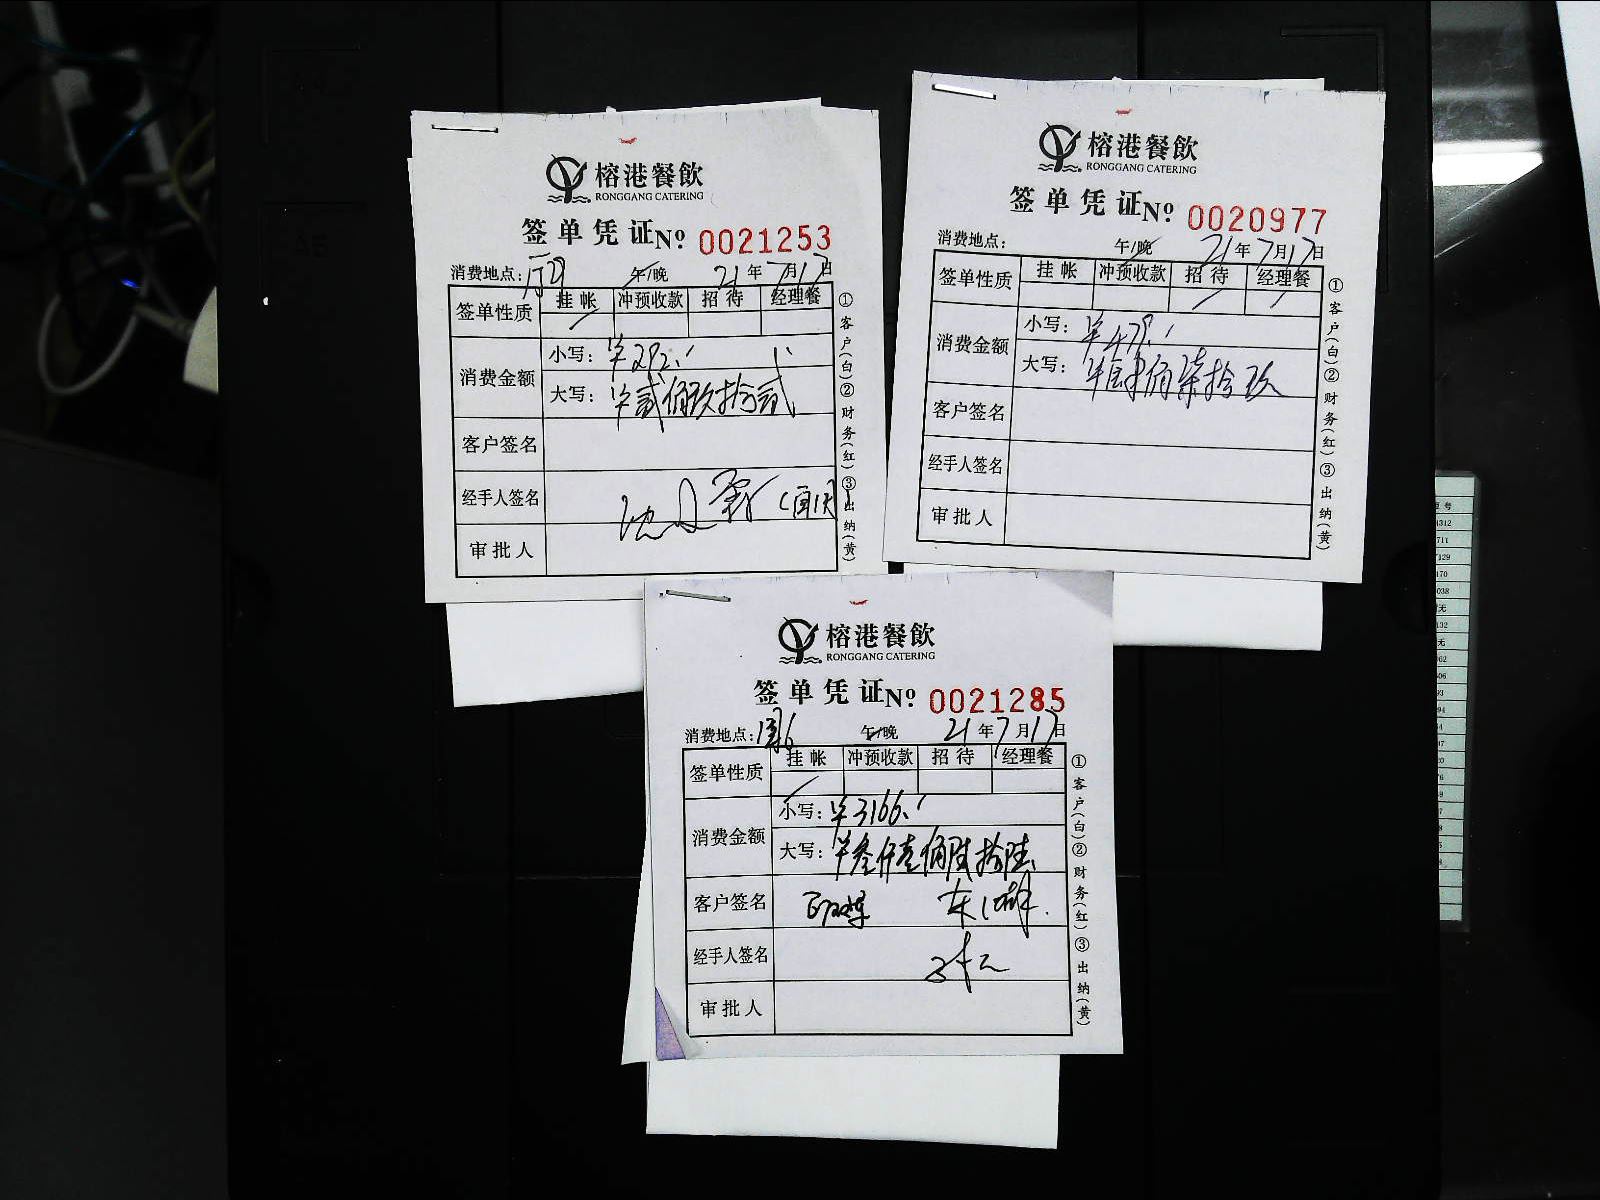 榕港餐飲
RONGGANG CATERING
签单凭证 Nº 0021253
消费地点: 午/晚 21年7月17日
签单性质 挂帐 冲预收款 招待 经理餐
消费金额
小写: ¥292.
大写: ¥贰佰玖拾贰
客户签名
经手人签名
审批人
①客户(白)②财务(红)③出纳(黄)
榕港餐飲
RONGGANG CATERING
签单凭证 Nº 0020977
消费地点: 午/晚 21年7月17日
签单性质 挂帐 冲预收款 招待 经理餐
消费金额
小写: ¥479.
大写: ¥肆佰柒拾玖
客户签名
经手人签名
审批人
①客户(白)②财务(红)③出纳(黄)
榕港餐飲
RONGGANG CATERING
签单凭证 Nº 0021285
消费地点: 午/晚 21年7月17日
签单性质 挂帐 冲预收款 招待 经理餐
消费金额
小写: ¥3166.
大写: ¥叁仟壹佰陆拾陆
客户签名
经手人签名
审批人
①客户(白)②财务(红)③出纳(黄)